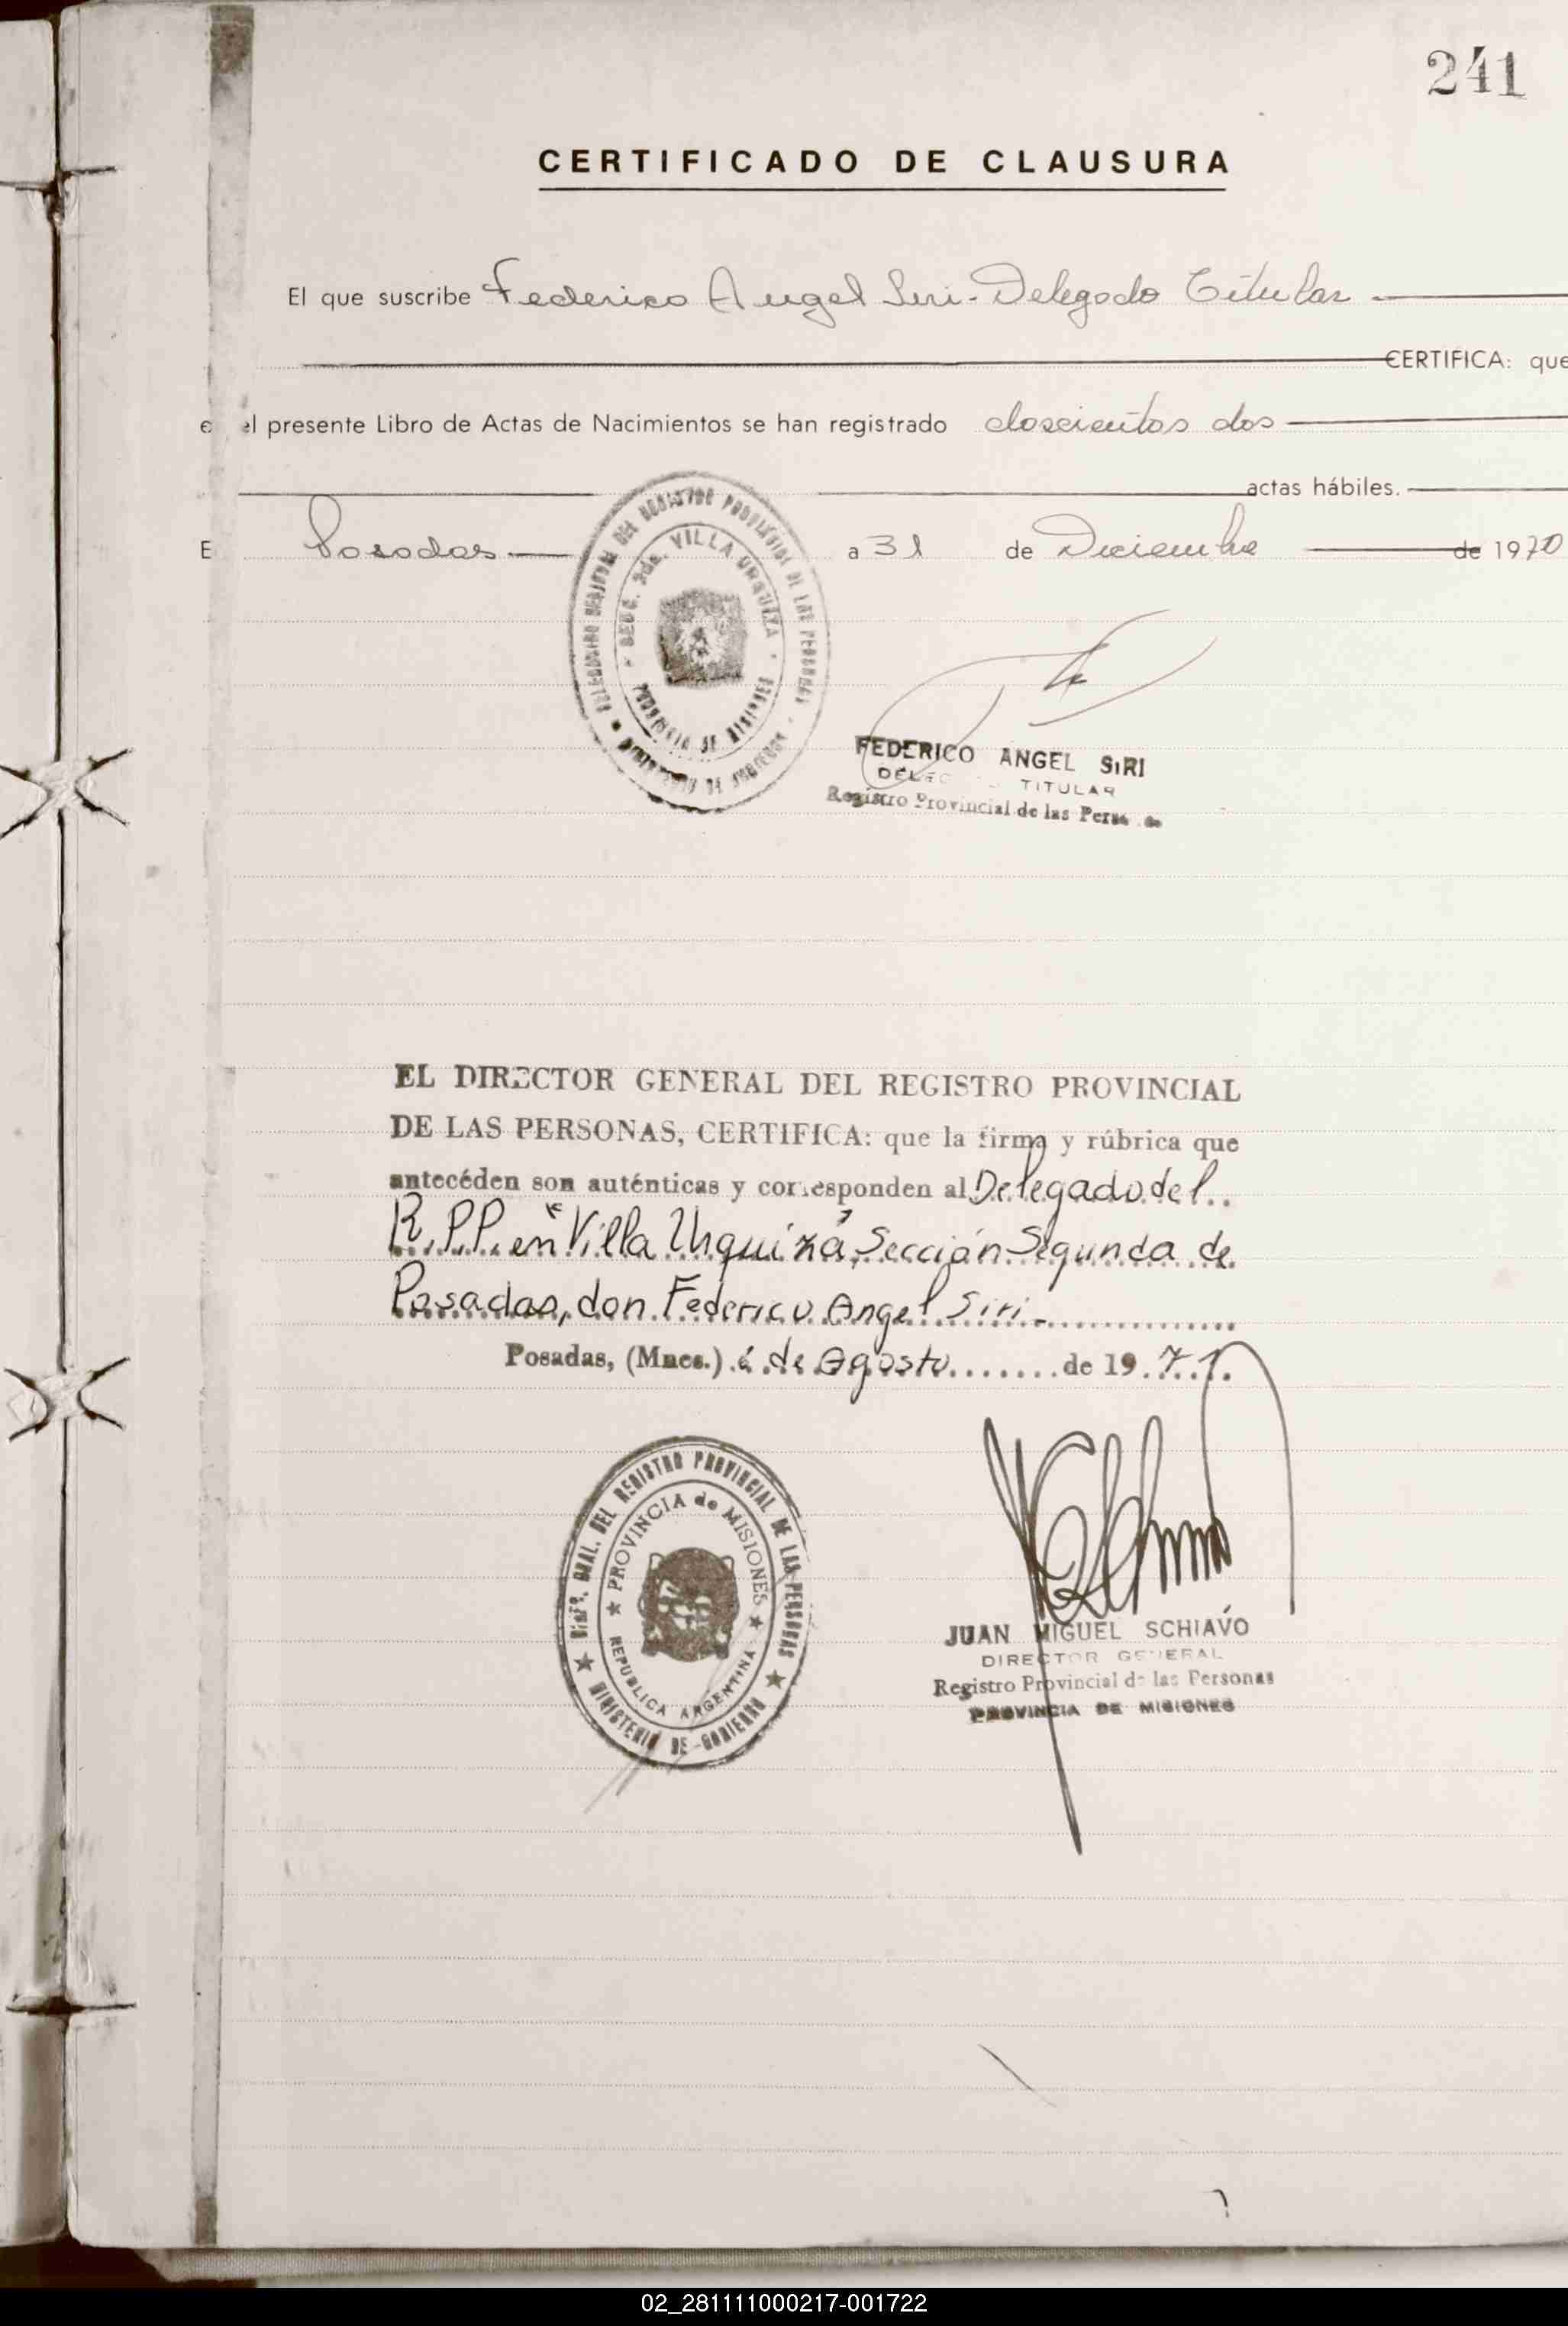 241
CERTIFICADO DE CLAUSURA
El que suscribe Federico Angel Siri - Delegado Titular
CERTIFICA: que
el presente Libro de Actas de Nacimientos se han registrado doscientos dos
actas hábiles.
E Posadas a 31 de Diciembre de 1970
DEL REGISTRO PROVINCIAL DE LAS PERSONAS
SECC. 2da. VILLA URQUIZA
PROVINCIA DE MISIONES
MINISTERIO DE GOBIERNO
FEDERICO ANGEL SIRI
TITULAR
Registro Provincial de las
EL DIRECTOR GENERAL DEL REGISTRO PROVINCIAL
DE LAS PERSONAS, CERTIFICA: que la firma y rúbrica que
antecéden son auténticas y corresponden al Delegado del
R.P.P. en "Villa Urquiza", Sección Segunda de
Posadas, don Federico Angel Siri
Posadas, (Mnes.) 6 de Agosto de 1971.
DIREC. GRAL. DEL REGISTRO PROVINCIAL DE LAS PERSONAS
PROVINCIA de MISIONES
REPUBLICA ARGENTINA
MINISTERIO DE GOBIERNO
JUAN MIGUEL SCHIAVO
DIRECTOR GENERAL
Registro Provincial de las Personas
PROVINCIA DE MISIONES
02_281111000217-001722